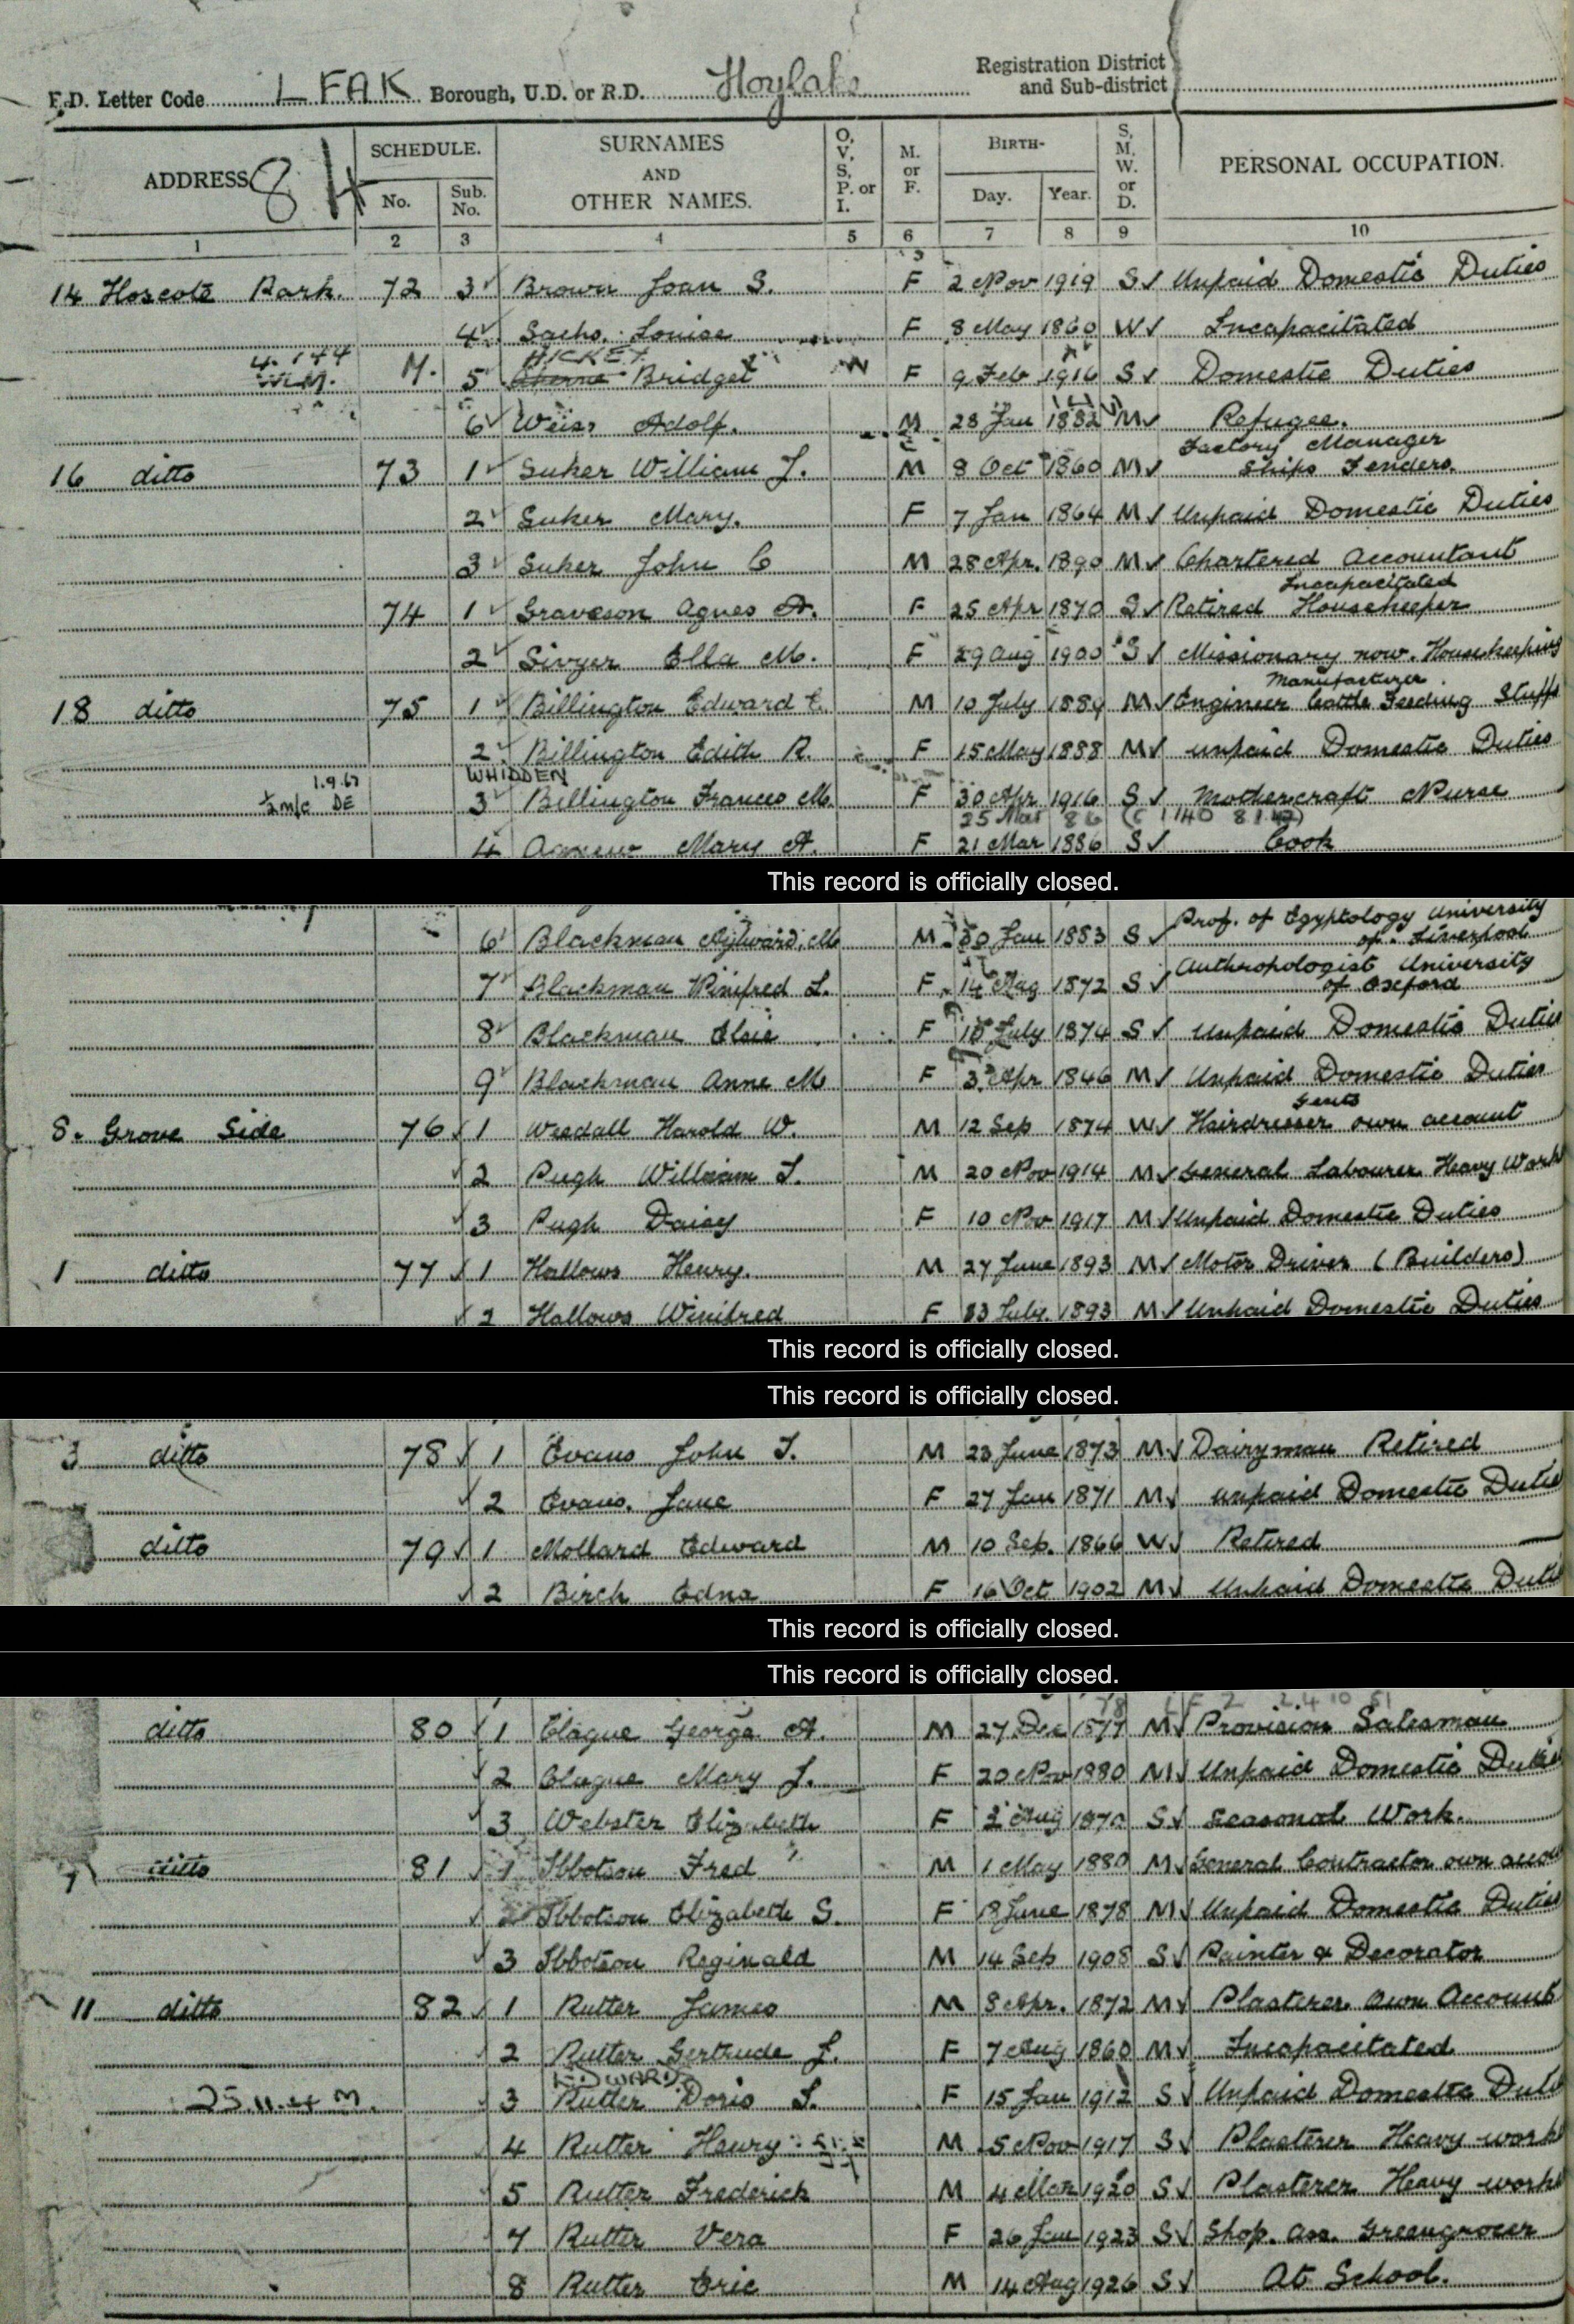 E.D. Letter Code LFAK Borough, U.D. or R.D. Hoylake Registration District and Sub-district
ADDRESS 84 SCHEDULE. No. Sub. No. SURNAMES AND OTHER NAMES. O, V, S, P. or I. M. or F. BIRTH- Day. Year. S, M. W. or D. PERSONAL OCCUPATION.
1 2 3 4 5 6 7 8 9 10
14 Hoscote Park. 72 3 Brown Joan S. F 2 Nov 1919 S Unpaid Domestic Duties
4 Sachs Louise F 8 May 1860 W Incapacitated
HICKEY
M. 5 Bridget F 9 Feb 1916 S Domestic Duties
6 Weiss Adolf. M 28 Jan 1882 M Refugee.
Factory Manager
16 ditto 73 1 Suker William J. M 8 Oct 1860 M Ships Fenders.
2 Suker Mary. F 7 Jan 1864 M Unpaid Domestic Duties
3 Suker John C M 28 Apr. 1890 M Chartered Accountant
Incapacitated
74 1 Graveson Agnes A. F 25 Apr 1870 S Retired Housekeeper
2 Sivyer Ella M. F 29 Aug 1900 S Missionary now. Housekeeping
Manufacturer
18 ditto 75 1 Billington Edward E. M 10 July 1889 M Engineer Cattle Feeding Stuffs
2 Billington Edith R. F 15 May 1888 M unpaid Domestic Duties
WHIDDEN
3 Billington Frances M. F 30 Apr 1916 S Mothercraft Nurse
4 Agnew Mary A. F 21 Mar 1886 S Cook
This record is officially closed.
Prof. of Egyptology University
6 Blackman Aylward. M M 30 Jan 1883 S of Liverpool
Anthropologist University
7 Blackman Winifred S. F 14 Aug 1872 S of Oxford
8 Blackman Elsie F 18 July 1874 S Unpaid Domestic Duties
9 Blackman Anne M F 3 Apr 1846 M Unpaid Domestic Duties
Gents
8. Grove Side 76 1 Weedall Harold W. M 12 Sep 1874 W Hairdresser own account
2 Pugh William J. M 20 Nov 1914 M General Labourer Heavy Work
3 Pugh Daisy F 10 Nov 1917 M Unpaid Domestic Duties
1 ditto 77 1 Hallows Henry. M 27 June 1893 M Motor Driver (Builders)
2 Hallows Winifred F 23 July. 1893 M Unpaid Domestic Duties
This record is officially closed.
This record is officially closed.
3 ditto 78 1 Evans John J. M 23 June 1873 M Dairyman Retired
2 Evans. Jane F 27 Jan 1871 M unpaid Domestic Duties
ditto 79 1 Mollard Edward M 10 Sep. 1866 W Retired
2 Birch Edna F 16 Oct 1902 M Unpaid Domestic Duties
This record is officially closed.
This record is officially closed.
ditto 80 1 Clague George A. M 27 Dec 1877 M Provision Salesman
2 Clague Mary J. F 20 Nov 1880 M Unpaid Domestic Duties
3 Webster Elizabeth F 2 Aug 1870 S Seasonal Work.
ditto 81 1 Ibbotson Fred M 1 May 1880 M General Contractor own
2 Ibbotson Elizabeth S. F 8 June 1878 M Unpaid Domestic Duties
3 Ibbotson Reginald M 14 Sep 1908 S Painter & Decorator
11 ditto 82 1 Rutter James M 8 Apr. 1872 M Plasterer Own Account
2 Rutter Gertrude J. F 7 Aug 1860 M Incapacitated
EDWARDS
3 Rutter Doris S. F 15 Jan 1912 S Unpaid Domestic Duties
4 Rutter Henry M 5 Nov 1917 S Plasterer Heavy work
5 Rutter Frederick M 4 Mar 1920 S Plasterer Heavy work
7 Rutter Vera F 26 Jan 1923 S Shop. Ass. Greengrocer
8 Rutter Eric M 14 Aug 1926 S At School.